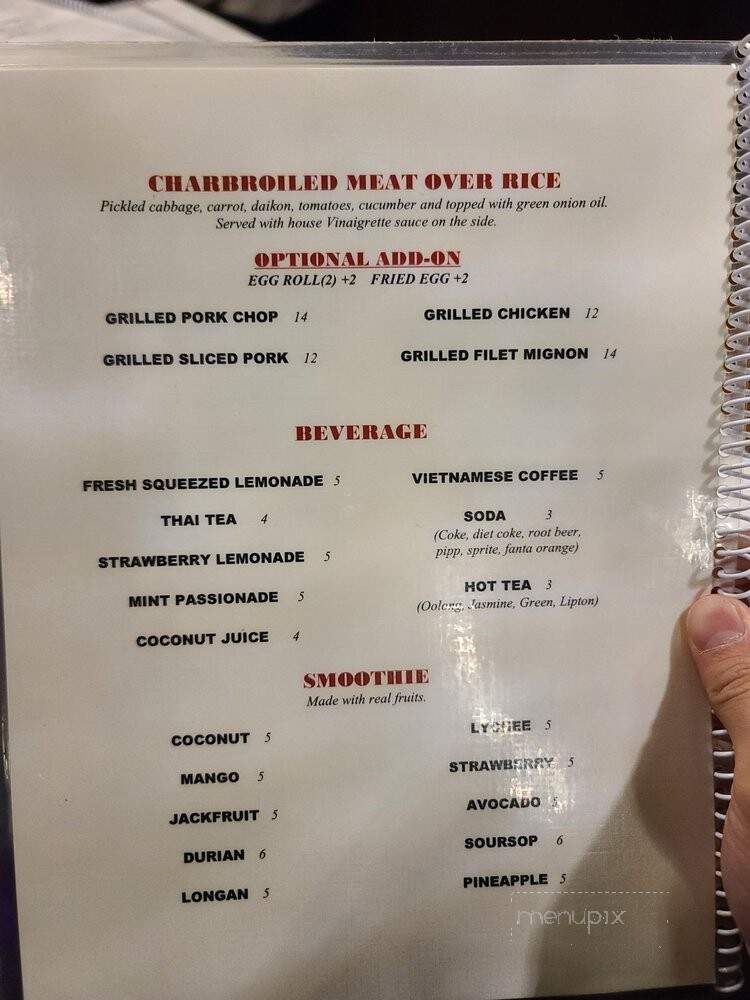 CHARBROILED MEAT OVER RICE
Pickled cabbage, carrot, daikon, tomatoes, cucumber and topped with green onion oil.
Served with house Vinaigrette sauce on the side.
OPTIONAL ADD-ON
EGG ROLL(2) +2 FRIED EGG +2
GRILLED PORK CHOP 14
GRILLED CHICKEN 12
GRILLED SLICED PORK 12
GRILLED FILET MIGNON 14
BEVERAGE
FRESH SQUEEZED LEMONADE 5
VIETNAMESE COFFEE 5
THAI TEA 4
SODA 3
(Coke, diet coke, root beer,
pipp, sprite, fanta orange)
STRAWBERRY LEMONADE 5
MINT PASSIONADE 5
HOT TEA 3
(Oolong, Jasmine, Green, Lipton)
COCONUT JUICE 4
SMOOTHIE
Made with real fruits.
COCONUT 5
LYCHEE 5
MANGO 5
STRAWBERRY 5
JACKFRUIT 5
AVOCADO 5
DURIAN 6
SOURSOP 6
LONGAN 5
PINEAPPLE 5
menupix